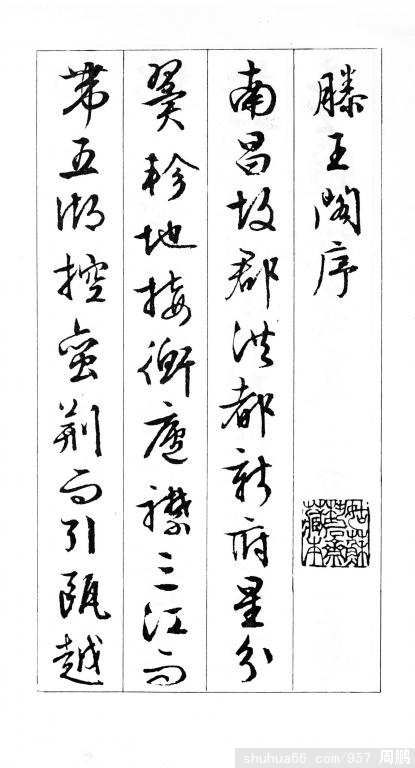 滕王阁序
南昌故郡洪都新府星分
翼轸地接衡庐襟三江而
带五湖控蛮荆而引瓯越
shuhua66.com/957 周鹏